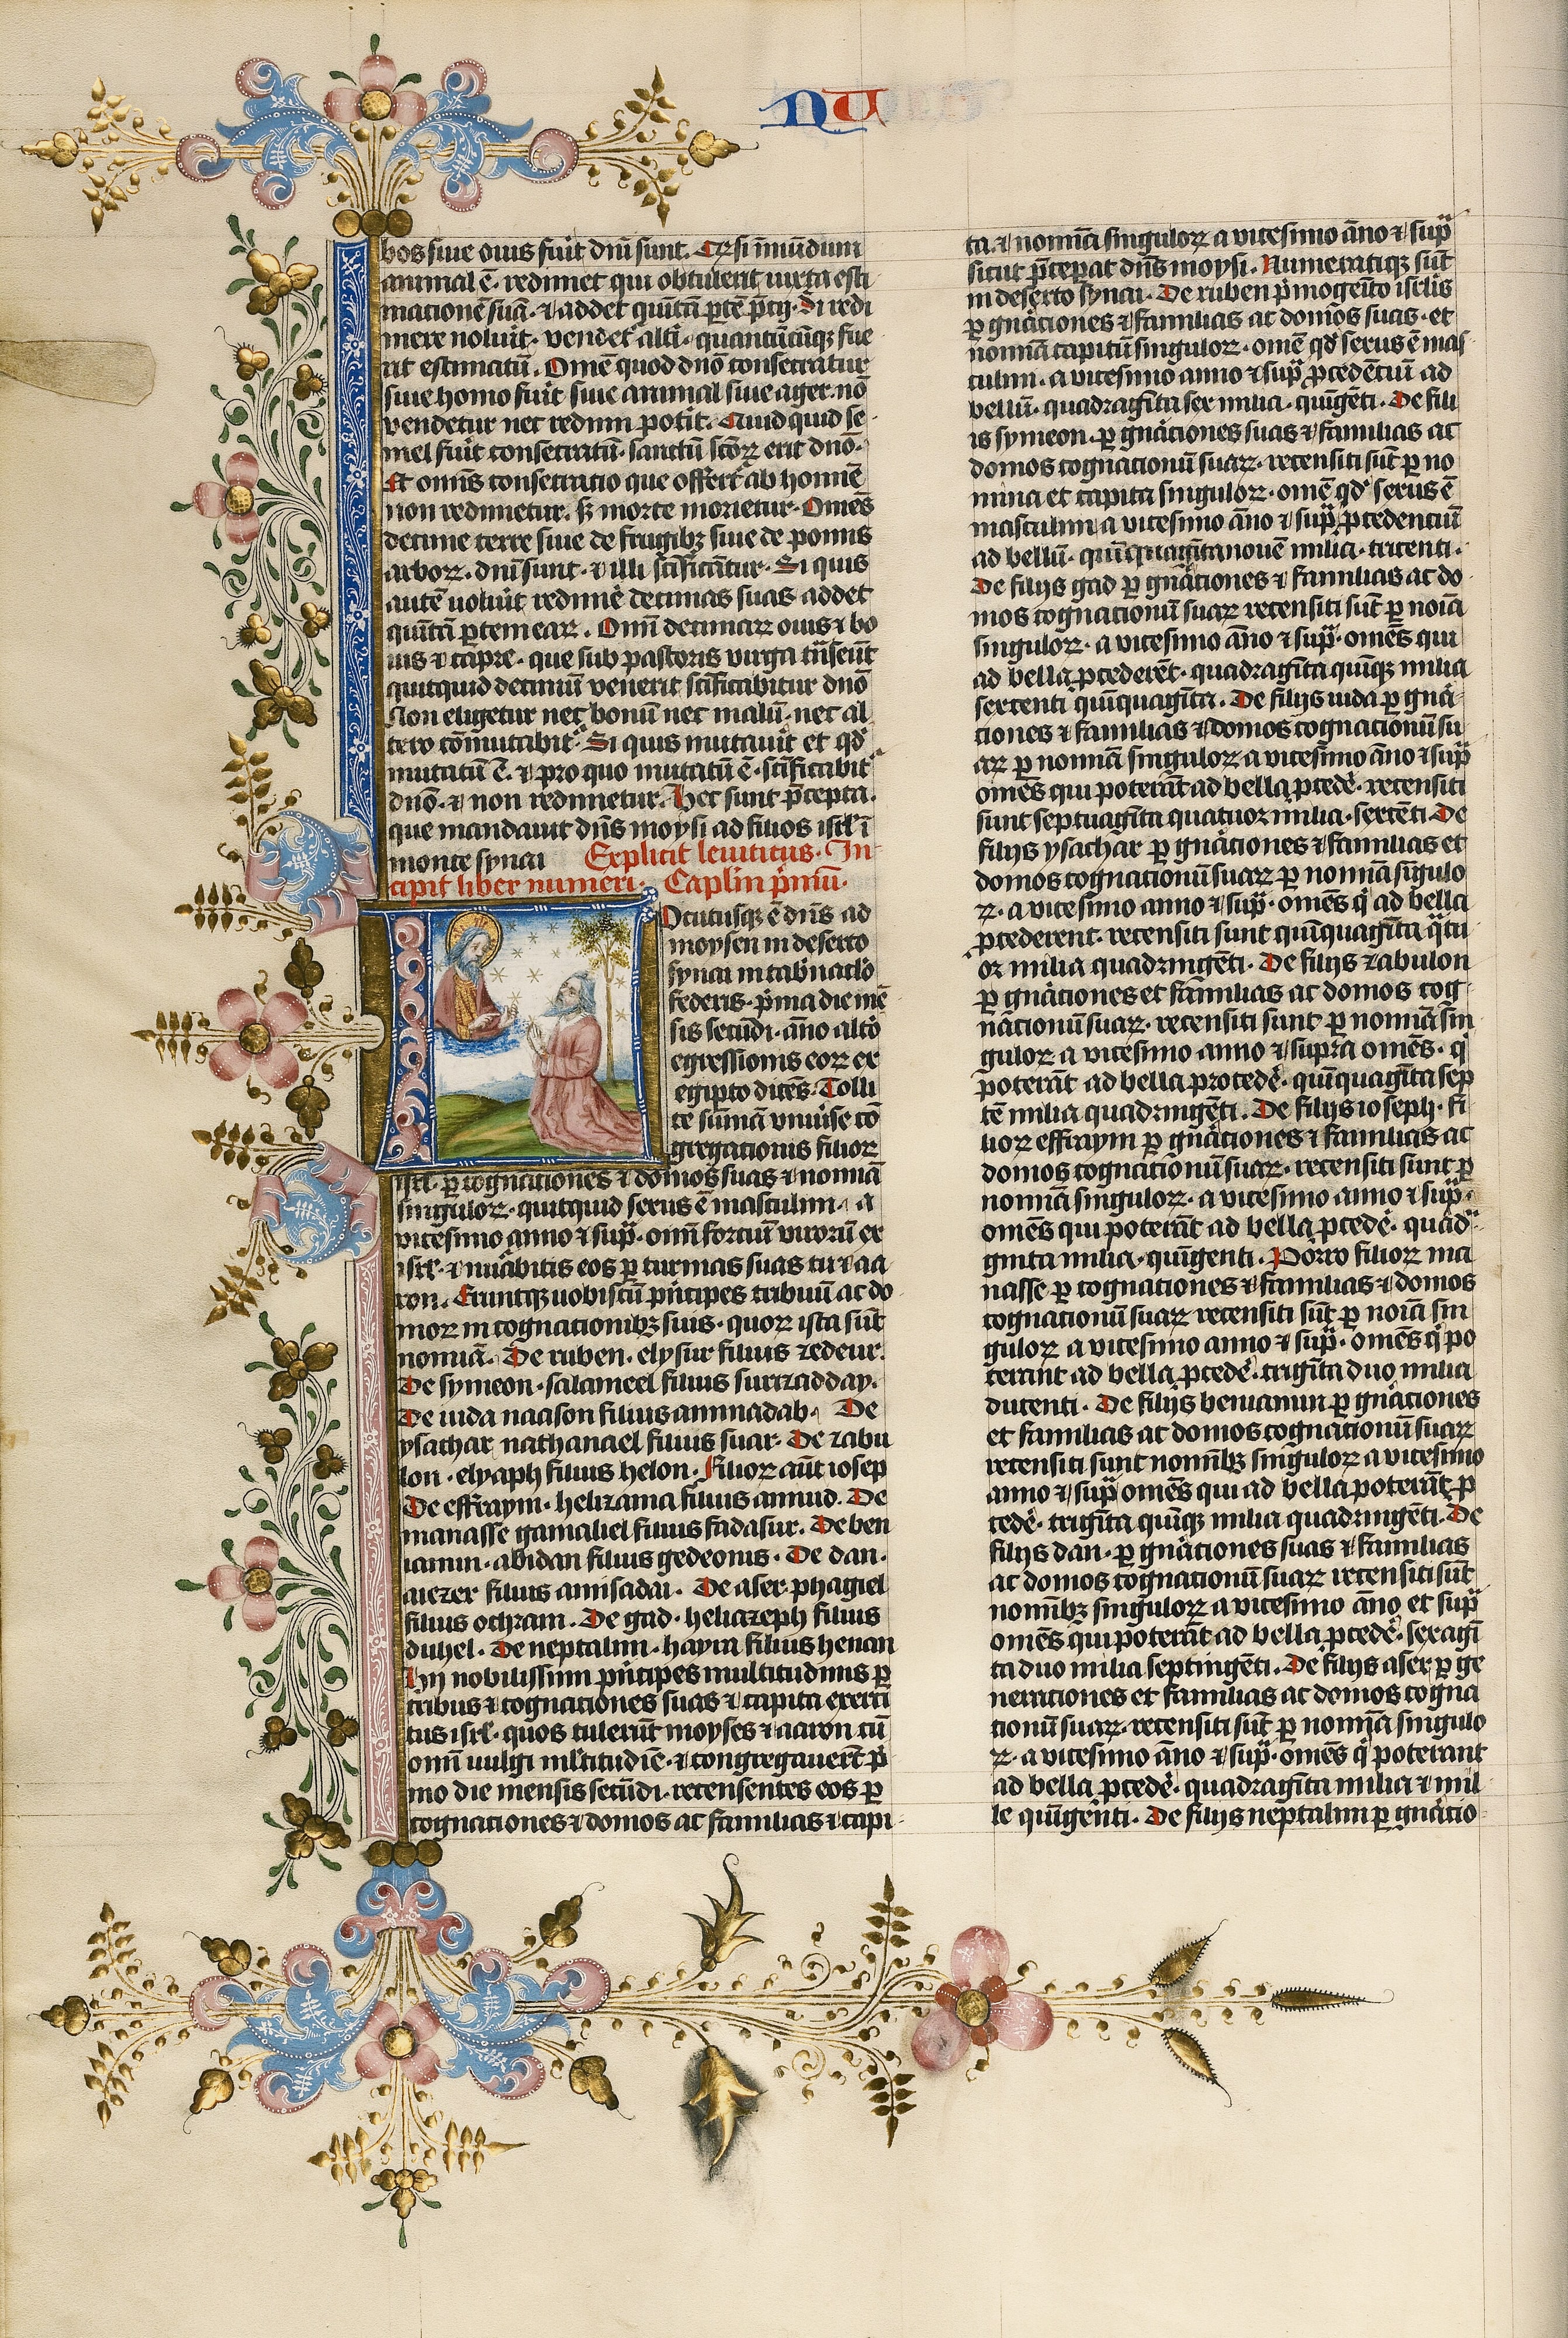 NU
bos siue ouis fuīt dn̄i sunt. Qr̄ si īmūdum
animal ē. redimet qui obtulerit iuxta esti
mationē suā. ⁊ addet quītā ꝑtē p̄cij. Si redi
mere noluīt. vendet᷑ alt̄i. quantūcūqꝫ fue
rit estimatū. Omē quod dn̄o consecratur
siue homo fuīt siue animal siue ager. nō
vendetur nec redimi potīt. Quid quid se
mel fuīt consecratū. sanctū sc̄oꝝ erit dn̄o.
Et omīs consecratio que offert᷑ ab homīe
non redimetur. sꝫ morte morietur. Omēs
decime terre siue de frugibꝫ siue de pomis
arboꝝ. dn̄i sunt. ⁊ illi sc̄ificātur. Si quis
autē uoluīt redimē decimas suas addet
quītā ꝑtem eaꝝ. Omī decimaꝝ ouis ⁊ bo
uis ⁊ capre. que sub pastoris virga trāseūt
quitquid decimū venerit sc̄ificabitur dn̄o
Non eligetur nec bonū nec malū. nec al
tero cōmutabit᷑. Si quis mutauīt et qd̄
mutatū ē. ⁊ pro quo mutatū ē. sc̄ificabit᷑
dn̄o. ⁊ non redimetur. Hec sunt p̄cepta.
que mandauit dn̄s moysi ad filios isrl̄ ī
monte synai Explicit leuiticus. In-
cipit liber numeri. Caplm̄ p̄mū.
Locutusqꝫ ē dn̄s ad
moysen in deserto
synai in tab̄naclo
federis. p̄ma die mē
sis secūdi. āno altō
egressionis eoꝝ ex
egipto dicēs. Tolli
te sūmā vniūse cō
gregationis filioꝝ
isrl̄. ꝑ cognationes ⁊ domos suas ⁊ nomīa
singuloꝝ. quitquid sexus ē masculini. a
vicesimo anno ⁊ sup̄. omī fortiū viroꝝ ex
isrl̄. ⁊ nūabitis eos ꝑ turmas suas tu ⁊ aa
ron. Eruntqꝫ uobiscū p̄ncipes tribuū ac do
moꝝ in cognationibꝫ suis. quoꝝ ista sūt
nomīa. De ruben. elysur filius zedeur.
De symeon. salameel filius surizadday.
De iuda naason filius aminadab. De
ysachar nathanael filius suar. De zabu
lon. elyaph filius helon. Filioꝝ aūt iosep
De effraym. helizama filius amiud. De
manasse gamaliel filius fadasur. De ben
iamin. abidan filius gedeonis. De dan.
aiezer filius amisadai. De aser. phagiel
filius ochram. De gad. heliazeph filius
duhel. De neptalim. hayra filius henan
Hij nobilissimi p̄ncipes multitudinis ꝑ
tribus ⁊ cognationes suas ⁊ capita exerci
tus isrl̄. quos tulerūt moyses ⁊ aaron cū
omī uulgi ml̄titudīe. ⁊ congregauerūt p̄
mo die mensis secūdi. recensentes eos ꝑ
cognationes ⁊ domos ac familias ⁊ capi
ta. ⁊ nomīa singuloꝝ a vicesimo āno ⁊ sup̄
sicut p̄ceperat dn̄s moysi. Numeratiqꝫ sūt
in deserto synai. De ruben p̄mogeīto isrl̄is
ꝑ gnātiones ⁊ familias ac domos suas. et
nomīa capitū singuloꝝ. omē qd̄ sexus ē mas
culini. a vicesimo anno ⁊ sup̄ ꝓcedētiū ad
bellū. quadragīta sex milia. quīgēti. De fili
is symeon. ꝑ gnātiones suas ⁊ familias ac
domos cognationū suaꝝ. recensiti sūt ꝑ no
mina et capita singuloꝝ. omē qd̄ sexus ē
masculini a vicesimo āno ⁊ sup̄ ꝓcedentiū
ad bellū. quīquagītanouē milia. tricenti.
De filijs gad ꝑ gnātiones ⁊ familias ac do
mos cognationū suaꝝ recensiti sūt ꝑ noīa
singuloꝝ. a vicesimo āno ⁊ sup̄. omēs qui
ad bella ꝓcederēt. quadragīta quīqꝫ milia
sexcenti quīquagīta. De filijs iuda ꝑ gnā-
tiones ⁊ familias ⁊ domos cognationū su
aꝝ ꝑ nomīa singuloꝝ a vicesimo āno ⁊ sup̄
omēs qui poterāt ad bella ꝓcedē. recensiti
sunt septuagīta quatuor milia. sexcēti. De
filijs ysachar ꝑ gnātiones ⁊ familias et
domos cognationū suaꝝ ꝑ nomīa sīgulo
ꝝ. a vicesimo anno ⁊ sup̄. omēs q̄ ad bella
ꝓcederent. recensiti sunt quīquagīta q̄tu
or milia quadrīgēti. De filijs zabulon
ꝑ gnātiones et familias ac domos cog-
nationū suaꝝ. recensiti sunt ꝑ nomīa sin
guloꝝ a vicesimo anno ⁊ supra omēs. q̄
poterāt ad bella procedē. quīquagīta sep
tē milia quadrīgēti. De filijs ioseph. fi
lioꝝ effraym ꝑ gnātiones ⁊ familias ac
domos cognationū suaꝝ. recensiti sunt ꝑ
nomīa singuloꝝ. a vicesimo anno ⁊ sup̄.
omēs qui poterāt ad bella ꝓcedē. quad̄-
ginta milia. quīgenti. Porro filioꝝ ma
nasse ꝑ cognationes ⁊ familias ⁊ domos
cognationū suaꝝ recensiti sūt ꝑ noīa sin
guloꝝ a vicesimo anno ⁊ sup̄. omēs q̄ po
terant ad bella ꝓcedē. trigīta duo milia
ducenti. De filijs beniamin ꝑ gnātiones
et familias ac domos cognationū suaꝝ
recensiti sunt nomībꝫ singuloꝝ a vicesimo
anno ⁊ sup̄ omēs qui ad bella poterāt ꝓ
cedē. trigīta quīqꝫ milia quadrīgēti. De
filijs dan. ꝑ gnātiones suas ⁊ familias
ac domos cognationū suaꝝ recensiti sūt
nomībꝫ singuloꝝ a vicesimo āno et sup̄
omēs qui poterāt ad bella ꝓcedē. sexagī
ta duo milia septingēti. De filijs aser ꝑ ge
nerationes et familias ac domos cogna
tionū suaꝝ. recensiti sūt ꝑ nomīa singulo
ꝝ. a vicesimo āno ⁊ sup̄. omēs q̄ poterant
ad bella ꝓcedē. quadragīta milia ⁊ mil
le quīgēnti. De filijs neptalim ꝑ gnātio